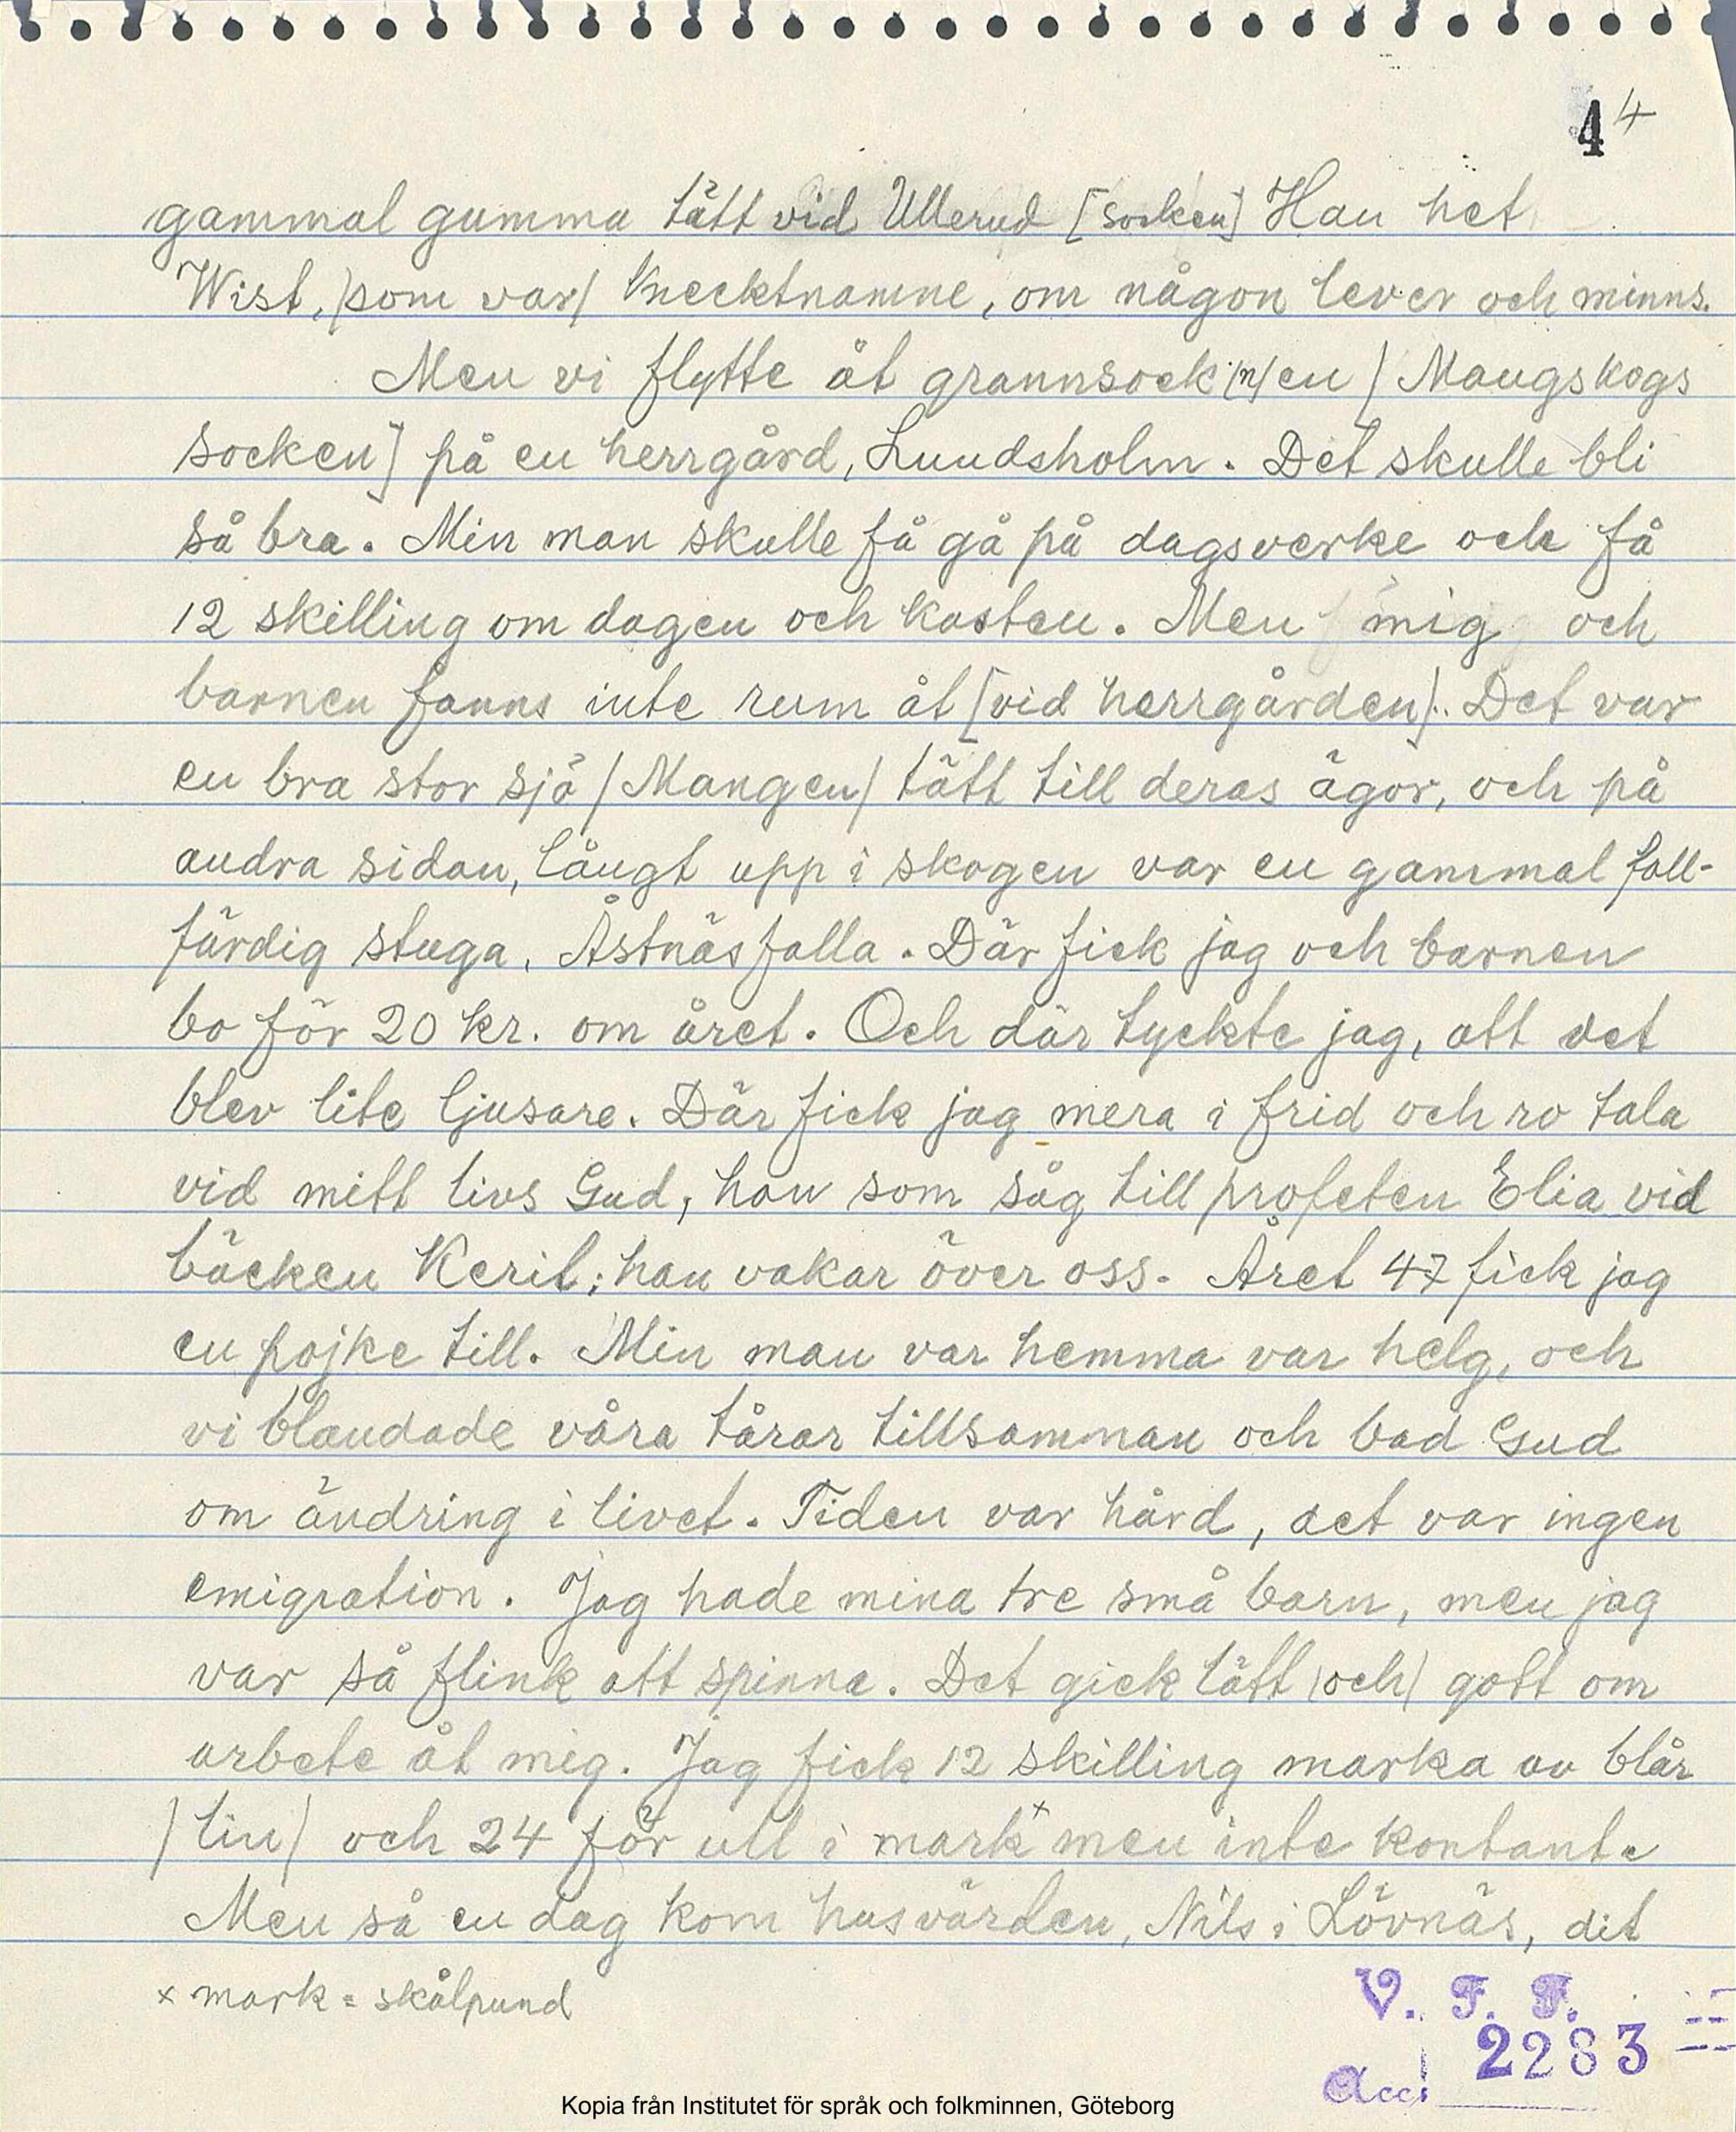 4 4
gammal gumma tätt vid Ullerud [socken] Han het
Wist, /som var/ knecktnamne, om någon lever och minns.
Men vi flytte åt grannsock(n)en / Mangskogs
socken] på en herrgård, Lundsholm. Det skulle bli
så bra. Min man skulle få gå på dagsverke och få
12 skilling om dagen och kosten. Men mig och
barnen fanns inte rum åt [vid herrgården]. Det var
en bra stor sjö /Mangen/ tätt till deras ägor, och på
andra sidan, långt upp i skogen var en gammal fall-
färdig stuga, Åstnäsfalla. Där fick jag och barnen
bo för 20 kr. om året. Och där tyckte jag, att det
blev lite ljusare. Där fick jag mera i frid och ro tala
vid mitt livs Gud, han som såg till profeten Elia vid
bäcken Kerit; han vakar över oss. Året 47 fick jag
en pojke till. Min man var hemma var helg, och
vi blandade våra tårar tillsamman och bad Gud
om ändring i livet. Tiden var hård, det var ingen
emigration. Jag hade mina tre små barn, men jag
var så flink att spinna. Det gick tätt /och/ gott om
arbete åt mig. Jag fick 12 skilling marka av blår
/lin/ och 24 för ull i mark x men inte kontant.
Men så en dag kom husvärden, Nils i Lövnäs, dit
x mark = skålpund
V. F. F.
2283
Acc.
Kopia från Institutet för språk och folkminnen, Göteborg